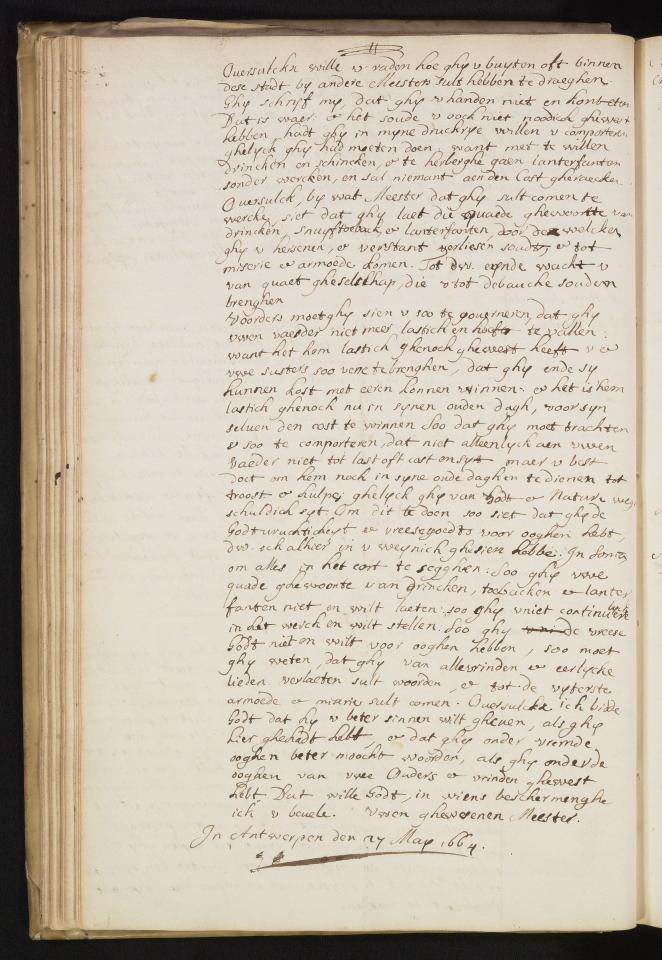 Oversulckx wille v raden hoe ghy v buyten oft binnen
dese stadt by andere Meesters sult hebben te draeghen.
Ghy schryft my, dat ghy v handen niet en kont eten
Dat is waer: & het soude v oock niet noodich gheweest
hebben, hadt ghy in myne druckrye willen v comporteren
ghelyck ghy had moeten doen, want met te willen
drincken en schincken, & te herberghe gaen lanterfanten
sonder wercken, en sal niemant aen den Cost gheraecken.
Oversulck, by wat Meester dat ghy sult comen te
wercken, siet dat ghy laet die quaede ghewoonte van
drincken, snuyftoback, & lanterfanten door de welcken
ghy v hersenen, & verstant verliesen soudt, & tot
miserie & armoede komen. Tot dwelck wacht v
van quaet gheselschap, die v tot debauche souden
brenghen
Voorders moet ghy sien v soo te gouverneren, dat ghy
vwen vaeder niet meer lastich en hoeft te vallen:
want het hem lastich ghenoch gheweest heeft v &
vwe susters soo verre te brenghen, dat ghy ende sy
kunnen kost met eeren konnen winnen. & het is hem
lastich ghenoch nu in synen ouden dagh, voor syn
selven den cost te winnen. Soo dat ghy moet trachten
v soo te comporteren, dat niet alleenlyck aen vwen
vaeder niet tot last oft cost en syt, maer v best
doet om hem noch in syne oude daghen te dienen tot
troost & hulpe, ghelyck ghy van Godt & Nature weghe
schuldich syt. Om dit te doen soo siet dat ghy de
Godtvruchticheyt & vreese Godts voor ooghen hebt,
dw. sch alhier in v weynich ghesien hebbe. In somma
om alles in het cort te segghen: Soo ghy vwe
quade ghewoonte van drincken, toebacken & lanter
fanten niet en wilt laeten: soo ghy v niet continuelyck
in het werck en wilt stellen: Soo ghy de vreese
Godts niet en wilt voor ooghen hebben, soo moet
ghy weten, dat ghy van alle vrinden & eerlycke
lieden verlaeten sult woorden, & tot de uyterste
armoede & miserie sult comen. Oversulckx ick bidde
Godt dat hy v beter sinnen wilt gheven, als ghy
hier ghehadt hebt, & dat ghy onder vremde
ooghen beter moocht woorden, als ghy onder de
ooghen van vwe Ouders & vrinden gheweest
hebt. Dat wille Godt, in wiens bescherminghe
ick v bevele. Vwen ghewesenen Meester.
In Antwerpen den 27 May 1664.